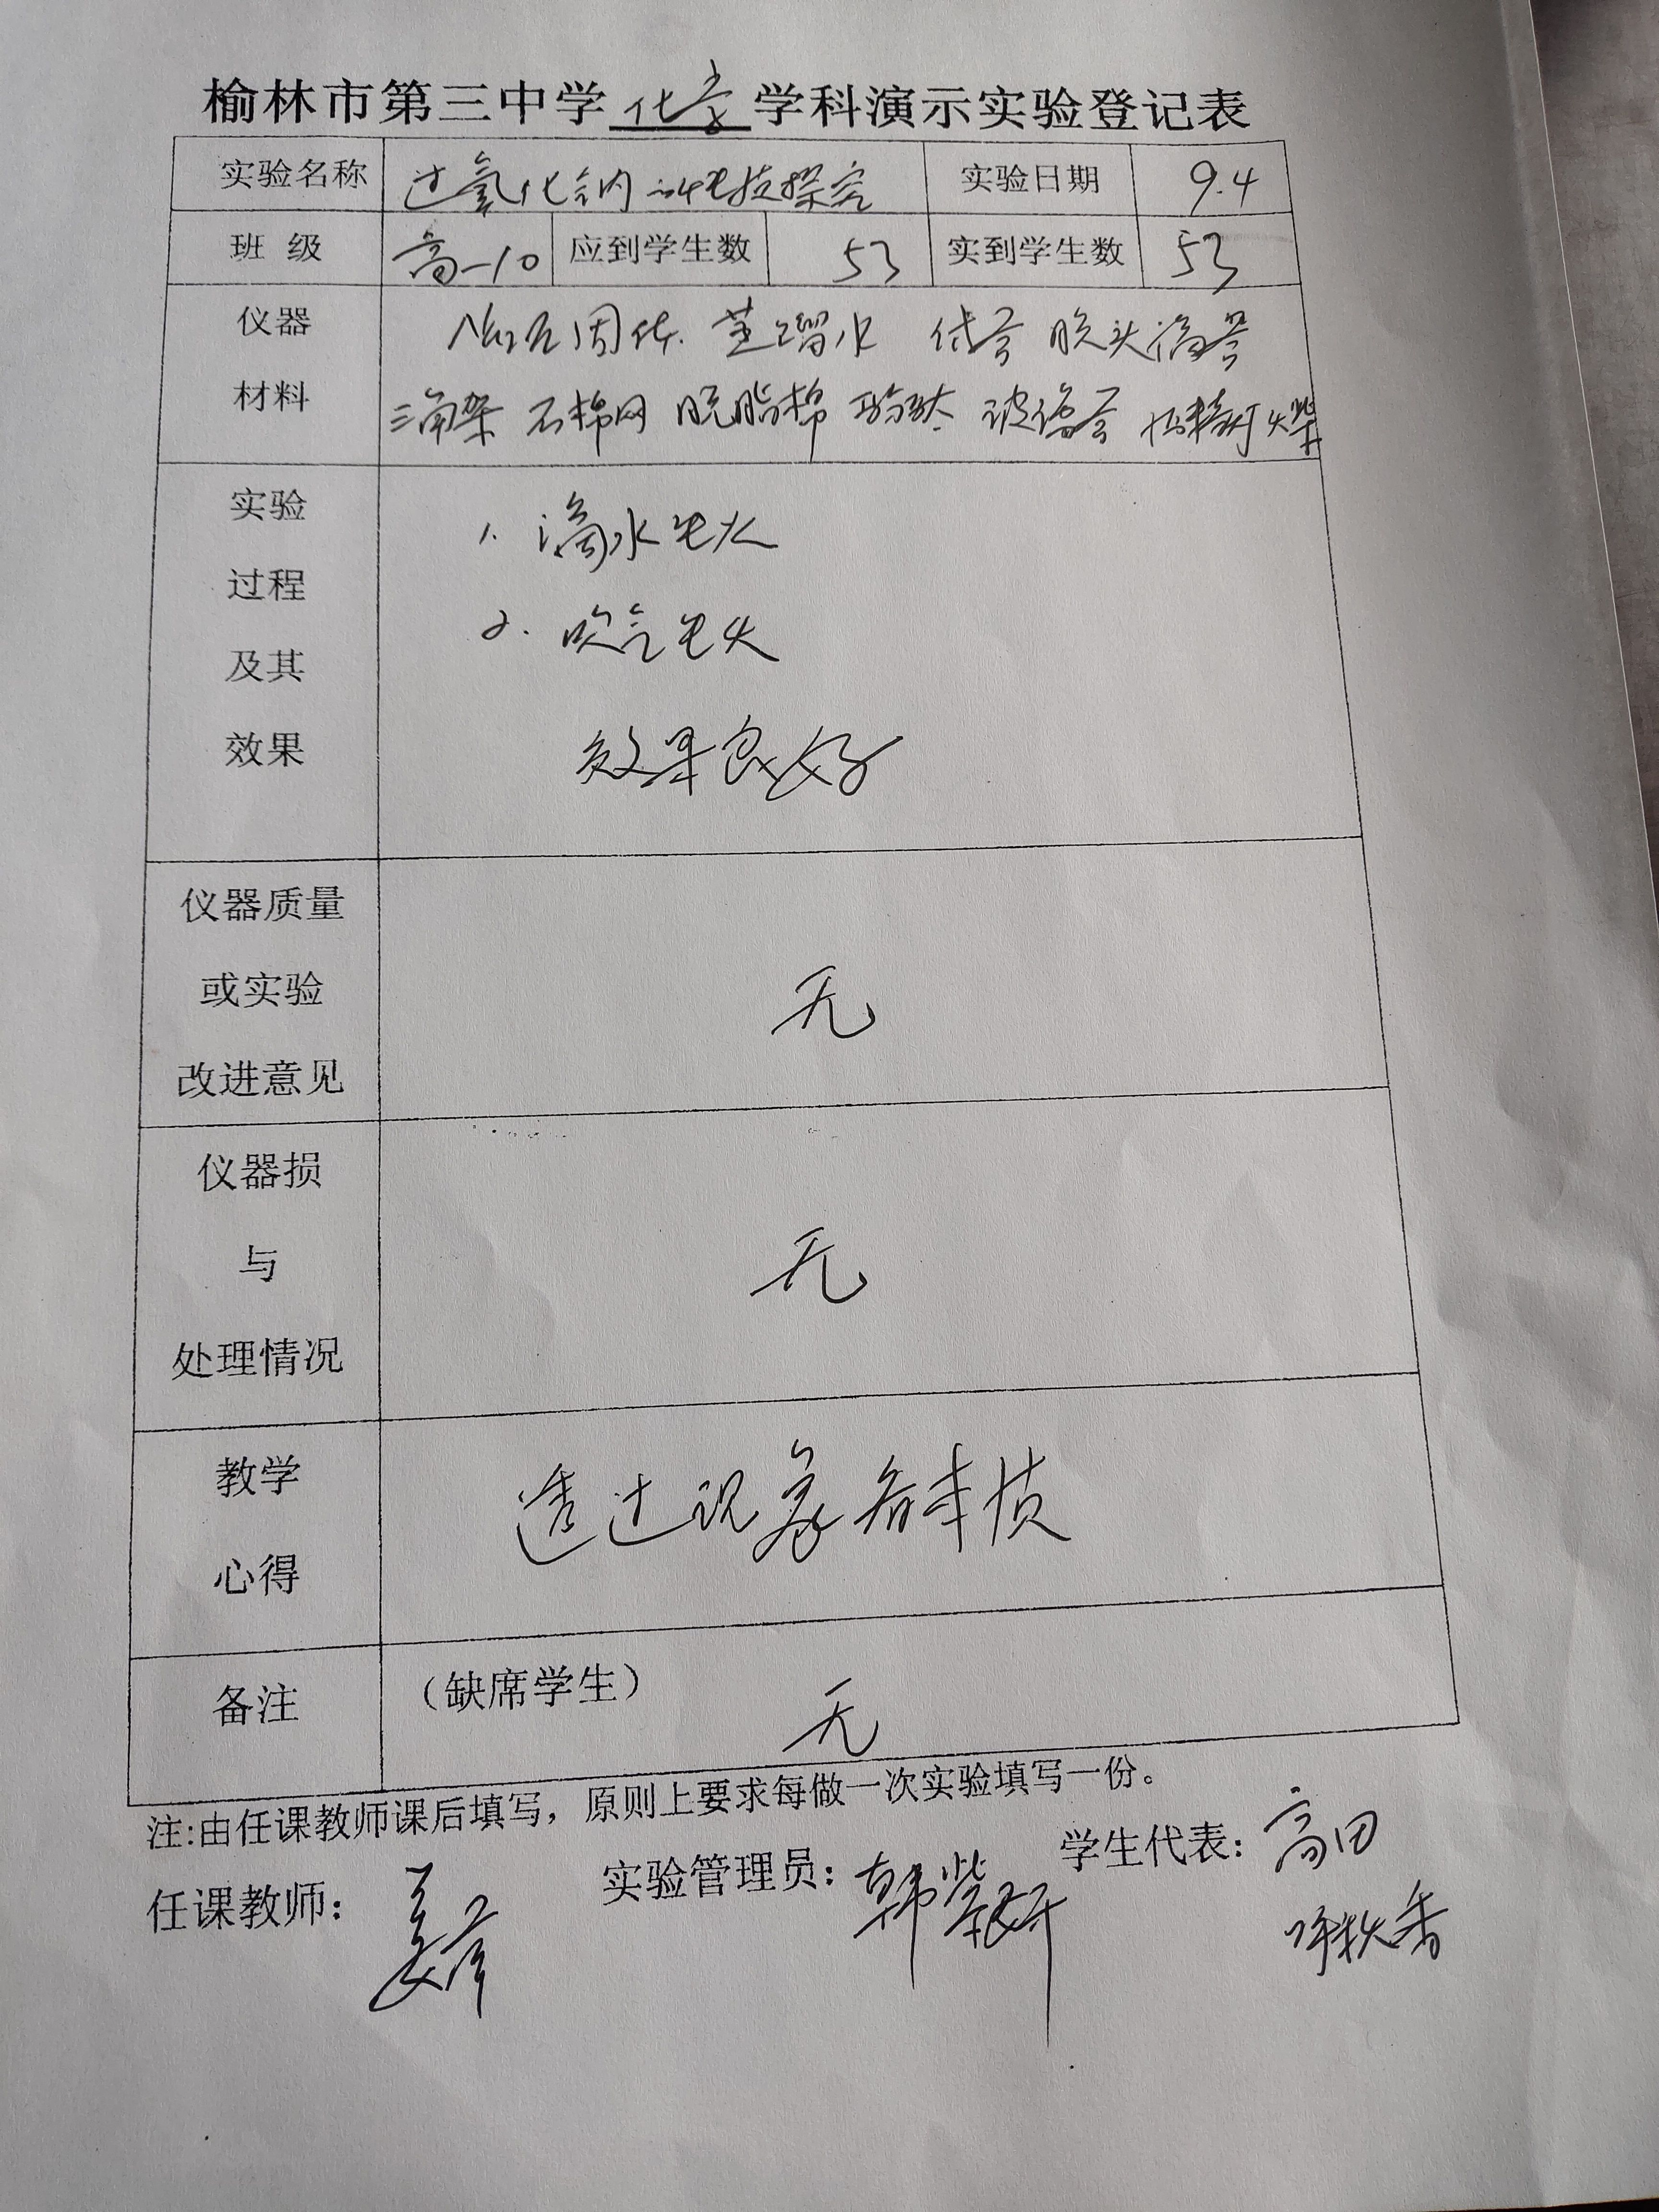 榆林市第三中学化学学科演示实验登记表
实验名称 过氧化钠的性质探究 实验日期 9.4
班级 高一10 应到学生数 53 实到学生数 53
仪器 Na₂O₂固体. 蒸馏水 试管 胶头滴管
材料 三角架 石棉网 脱脂棉 玻璃管 火柴
实验 1. 滴水生火
过程
及其 2. 吹气生火
效果 效果良好
仪器质量
或实验 无
改进意见
仪器损
与 无
处理情况
教学 透过现象看本质
心得
备注 (缺席学生) 无
注:由任课教师课后填写，原则上要求每做一次实验填写一份。
任课教师: 实验管理员: 韩紫研 学生代表: 高田
秋香